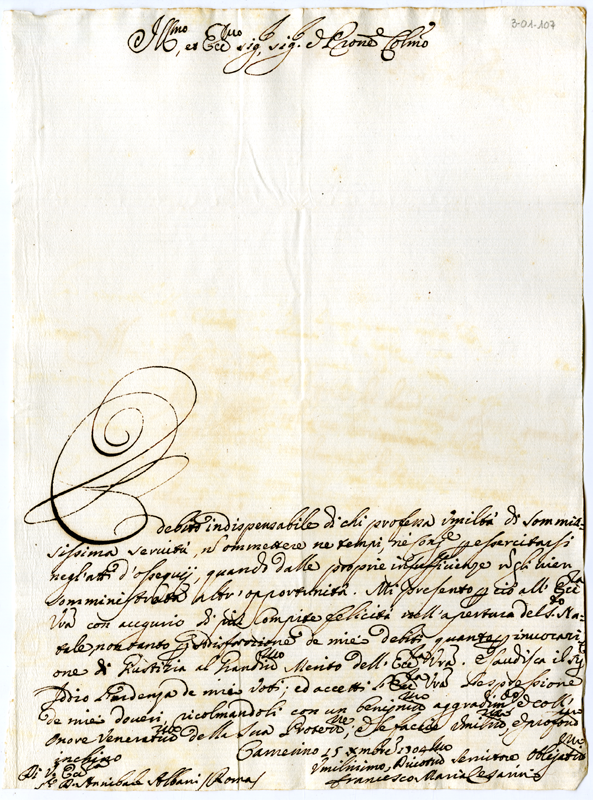 3-01-107
Ill.mo et Ecc.mo sig.r sig.r e Prone Colmo
E debito indispensabile di chi professa umiltà di sommis-
sissima servitù, n'ommettere ne tempi, ne essercitarsi
negli atti d'ossequij, quando dalle proprie insufficienze vien
somministrata altr'opportunità. Mi presento p ciò all' Ecc.za
Vra con augurio di più compite felicità nell'apertura del S. Na-
tale non tanto p sodisfazione de miei debiti quanto p invocazi-
one di Giustizia al grand.mo Merito dell' Ecc.za Vra. Esaudisca il Sig.r
Iddio l'ardenza de miei voti; ed accetti l'Ecc.za Vra l'espressione
de miei doveri, ricolmandoli con un benignis.mo aggradim.to e coll'
onore venerat.mo della sua Protez.ne, e le faccio umilis.ma e profond.ma
inchino Camerino 15 Xmbre 1704
Di V. Ecc.za Umilissimo, Divotis.mo servitore obligat.mo
S.r D. Annibale Albani / Roma / Francesco Maria